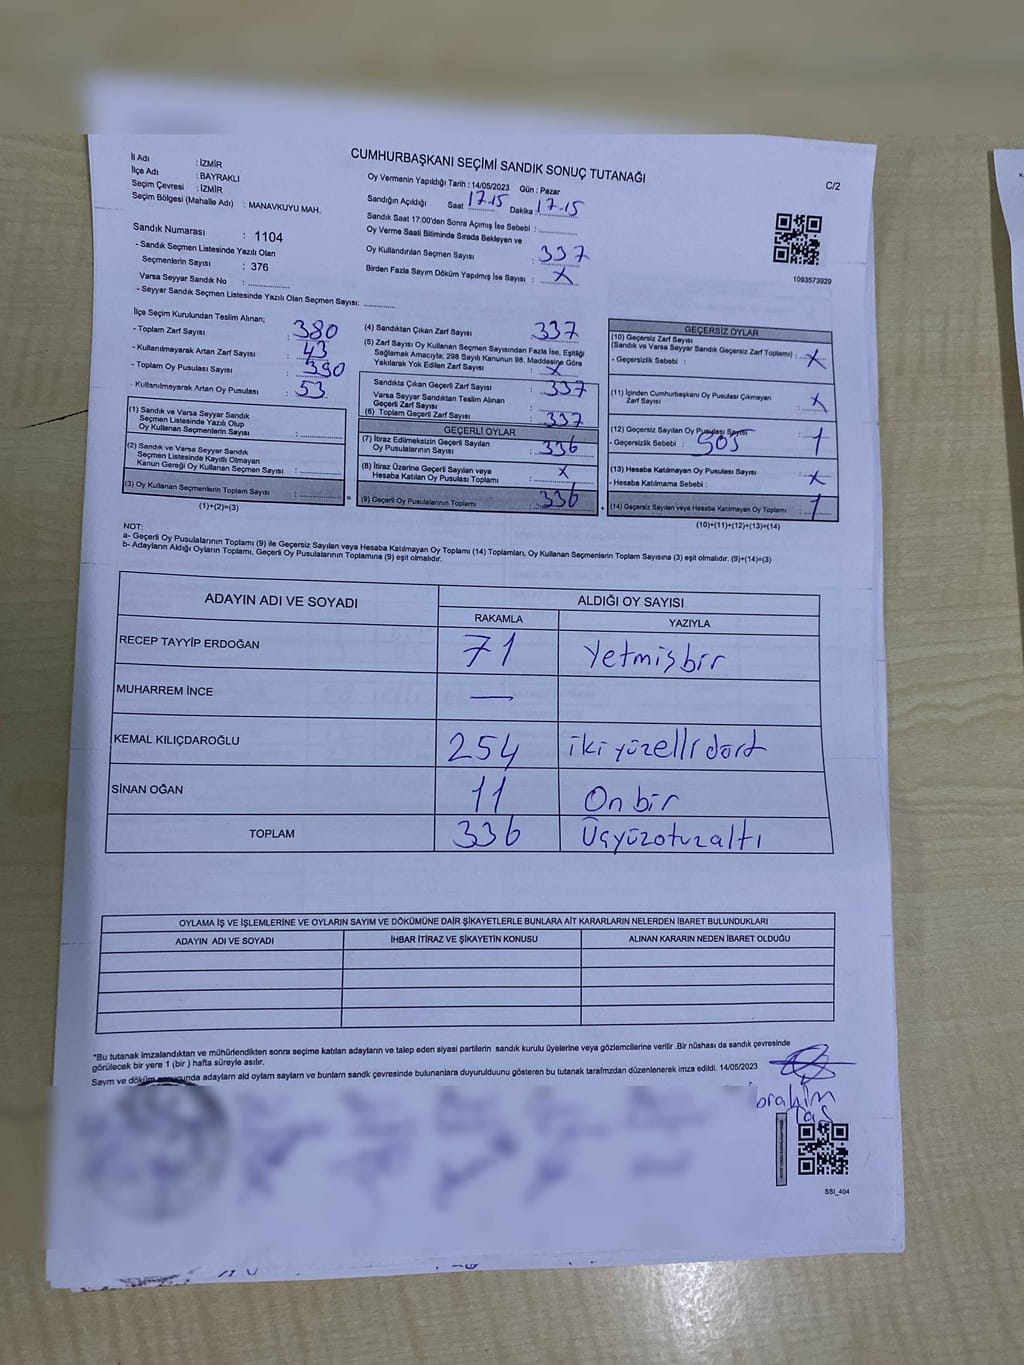 CUMHURBAŞKANI SEÇİMİ SANDIK SONUÇ TUTANAĞI
C/2
İl Adı : İZMİR
İlçe Adı : BAYRAKLI
Seçim Çevresi : İZMİR
Seçim Bölgesi (Mahalle Adı) : MANAVKUYU MAH.
Sandık Numarası : 1104
- Sandık Seçmen Listesinde Yazılı Olan
Seçmenlerin Sayısı : 376
Varsa Seyyar Sandık No :
- Seyyar Sandık Seçmen Listesinde Yazılı Olan Seçmen Sayısı:
Oy Vermenin Yapıldığı Tarih : 14/05/2023 Gün : Pazar
Sandığın Açıldığı Saat 17.15 Dakika : 17.15
Sandık Saat 17:00'den Sonra Açımış İse Sebebi :
Oy Verme Saati Bitiminde Sırada Bekleyen ve
Oy Kullandırılan Seçmen Sayısı : 337
Birden Fazla Sayım Döküm Yapılmış İse Sayısı : X
1093573929
İlçe Seçim Kurulundan Teslim Alınan;
- Toplam Zarf Sayısı : 380
- Kullanılmayarak Artan Zarf Sayısı : 43
- Toplam Oy Pusulası Sayısı : 390
- Kullanılmayarak Artan Oy Pusulası : 53
(1) Sandık ve Varsa Seyyar Sandık
Seçmen Listesinde Yazılı Olup
Oy Kullanan Seçmenlerin Sayısı :
(2) Sandık ve Varsa Seyyar Sandık
Seçmen Listesinde Kayıtlı Olmayan
Kanun Gereği Oy Kullanan Seçmen Sayısı :
(3) Oy Kullanan Seçmenlerin Toplam Sayısı :
(1)+(2)=(3)
(4) Sandıktan Çıkan Zarf Sayısı : 337
(5) Zarf Sayısı Oy Kullanan Seçmen Sayısından Fazla İse, Eşitliği
Sağlamak Amacıyla; 298 Sayılı Kanunun 98. Maddesine Göre
Yakılarak Yok Edilen Zarf Sayısı : X
Sandıkta Çıkan Geçerli Zarf Sayısı : 337
Varsa Seyyar Sandıktan Teslim Alınan
Geçerli Zarf Sayısı :
(6) Toplam Geçerli Zarf Sayısı : 337
GEÇERLİ OYLAR
(7) İtiraz Edilmeksizin Geçerli Sayılan
Oy Pusulasının Sayısı : 336
(8) İtiraz Üzerine Geçerli Sayılan veya
Hesaba Katılan Oy Pusulası Toplamı : X
(9) Geçerli Oy Pusulalarının Toplamı : 336
GEÇERSİZ OYLAR
(10) Geçersiz Zarf Sayısı
(Sandık ve Varsa Seyyar Sandık Geçersiz Zarf Toplamı) : X
- Geçersizlik Sebebi :
(11) İçinden Cumhurbaşkanı Oy Pusulası Çıkmayan
Zarf Sayısı : X
(12) Geçersiz Sayılan Oy Pusulası Sayısı : 1
- Geçersizlik Sebebi :
(13) Hesaba Katılmayan Oy Pusulası Sayısı : X
- Hesaba Katılmama Sebebi :
(14) Geçersiz Sayılan veya Hesaba Katılmayan Oy Toplamı : 1
(10)+(11)+(12)+(13)=(14)
NOT:
a- Geçerli Oy Pusulalarının Toplamı (9) ile Geçersiz Sayılan veya Hesaba Katılmayan Oy Toplamı (14) Toplamları, Oy Kullanan Seçmenlerin Toplam Sayısına (3) eşit olmalıdır. (9)+(14)=(3)
b- Adayların Aldığı Oyların Toplamı, Geçerli Oy Pusulalarının Toplamına (9) eşit olmalıdır.
ADAYIN ADI VE SOYADI ALDIĞI OY SAYISI
RAKAMLA YAZIYLA
RECEP TAYYİP ERDOĞAN 71 Yetmişbir
MUHARREM İNCE —
KEMAL KILIÇDAROĞLU 254 ikiyüzellidört
SİNAN OĞAN 11 Onbir
TOPLAM 336 Üçyüzotuzaltı
OYLAMA İŞ VE İŞLEMLERİNE VE OYLARIN SAYIM VE DÖKÜMÜNE DAİR ŞİKAYETLERLE BUNLARA AİT KARARLARIN NELERDEN İBARET BULUNDUKLARI
ADAYIN ADI VE SOYADI İHBAR İTİRAZ VE ŞİKAYETİN KONUSU ALINAN KARARIN NEDEN İBARET OLDUĞU
*Bu tutanak imzalandıktan ve mühürlendikten sonra seçime katılan adayların ve talep eden siyasi partilerin sandık kurulu üyelerine veya gözlemcilerine verilir .Bir nüshası da sandık çevresinde
görülecek bir yere 1 (bir ) hafta süreyle asılır.
Sayım ve döküm sonucunda adayların ald oyların sayların ve bunların sandk çevresinde bulunanlara duyurulduunu gösteren bu tutanak tarafmzdan düzenlenerek imza edildi. 14/05/2023
İbrahim
Taş
SSI_404